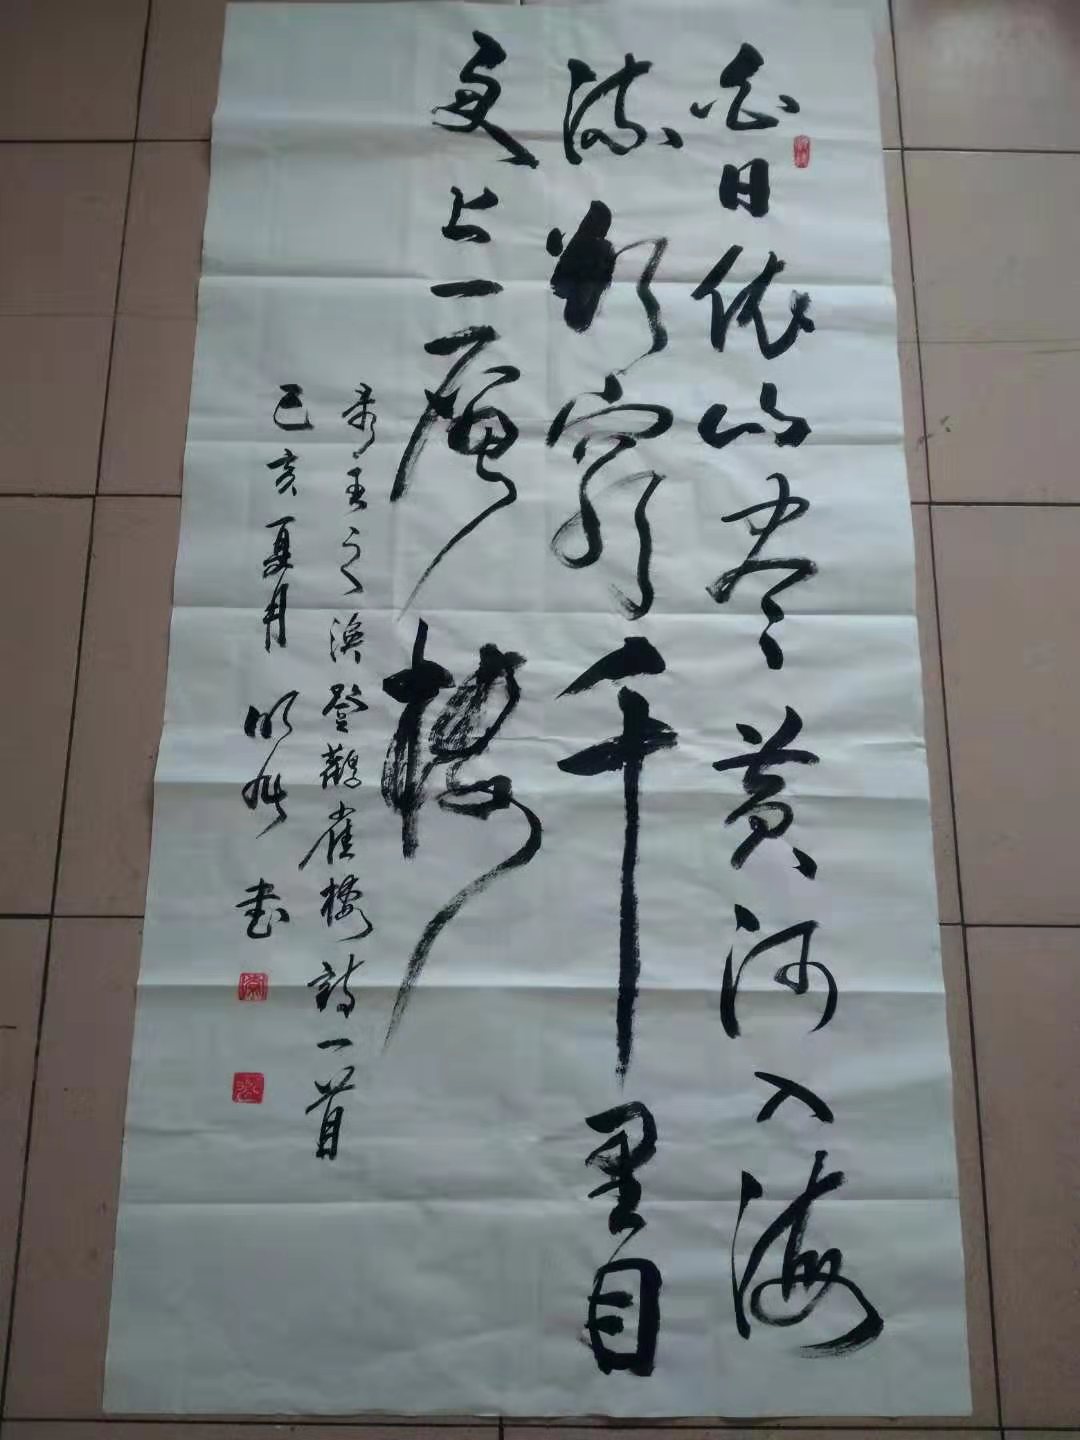 白日依山尽黄河入海
流欲穷千里目
更上一层楼
录王之涣登鹳雀楼诗一首
己亥夏月 明 书